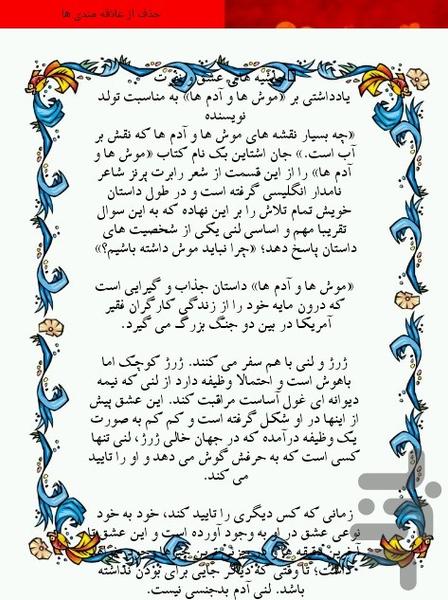 حذف از علاقه مندی ها
حاشیه های عشق و نفرت
یادداشتی بر «موش ها و آدم ها» به مناسبت تولد
نویسنده
«چه بسیار نقشه های موش ها و آدم ها که نقش بر
آب است.» جان اشتاین بک نام کتاب «موش ها و
آدم ها» را از این قسمت از شعر رابرت برنز شاعر
نامدار انگلیسی گرفته است و در طول داستان
خویش تمام تلاش را بر این نهاده که به این سوال
تقریبا مهم و اساسی لنی یکی از شخصیت های
داستان پاسخ دهد؛ «چرا نباید موش داشته باشیم؟»
«موش ها و آدم ها» داستان جذاب و گیرایی است
که درون مایه خود را از زندگی کارگران فقیر
آمریکا در بین دو جنگ بزرگ می گیرد.
ژرژ و لنی با هم سفر می کنند. ژرژ کوچک اما
باهوش است و احتمالا وظیفه دارد از لنی که نیمه
دیوانه ای غول آساست مراقبت کند. این عشق پیش
از اینها در او شکل گرفته است و کم کم به صورت
یک وظیفه درآمده که در جهان خالی ژرژ، لنی تنها
کسی است که به حرفش گوش می دهد و او را تایید
می کند.
زمانی که کس دیگری را تایید کند، خود به خود
نوعی عشق در او به وجود آورده است و این عشق تا
داشت؛ تا وقتی که دیگر جایی برای بودن نداشته
باشد. لنی آدم بدجنسی نیست.